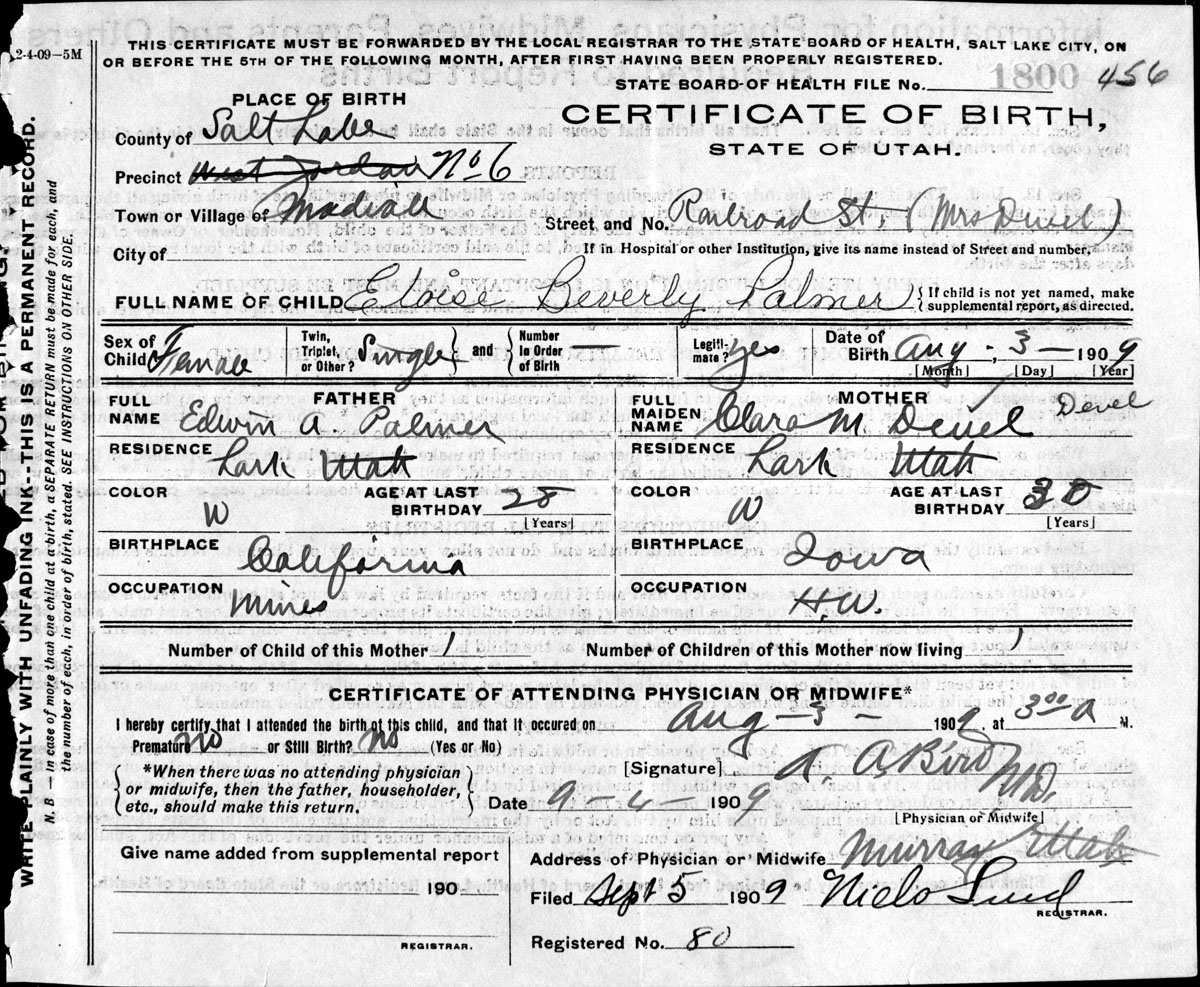 2-4-09—5M
THIS CERTIFICATE MUST BE FORWARDED BY THE LOCAL REGISTRAR TO THE STATE BOARD OF HEALTH, SALT LAKE CITY, ON
OR BEFORE THE 5TH OF THE FOLLOWING MONTH, AFTER FIRST HAVING BEEN PROPERLY REGISTERED.
1800 456
STATE BOARD OF HEALTH FILE No.
CERTIFICATE OF BIRTH,
STATE OF UTAH.
PLACE OF BIRTH
County of Salt Lake
Precinct West Jordan No 6
Town or Village of
Street, and No. Railroad St. (Mrs Devel)
City of
If in Hospital or other Institution, give its name instead of Street and number.
FULL NAME OF CHILD Eloise Beverly Palmer { If child is not yet named, make supplemental report, as directed.
Sex of Child Female Twin, Triplet, or Other? Single } and { Number in Order of Birth — Legiti-mate? Yes Date of Birth Aug - 3 — 1909
[Month] [Day] [Year]
FATHER
FULL NAME Edwin A. Palmer
RESIDENCE Lark Utah
COLOR W AGE AT LAST BIRTHDAY 28
[Years]
BIRTHPLACE California
OCCUPATION Mines
MOTHER
FULL MAIDEN NAME Clara M. Devel Devel
RESIDENCE Lark Utah
COLOR W AGE AT LAST BIRTHDAY 30
[Years]
BIRTHPLACE Iowa
OCCUPATION H.W.
Number of Child of this Mother 1 Number of Children of this Mother now living 1
CERTIFICATE OF ATTENDING PHYSICIAN OR MIDWIFE*
I hereby certify that I attended the birth of this child, and that it occured on Aug — 3 — 1909, at 3 00 a M.
Premature No or Still Birth? No (Yes or No)
{ *When there was no attending physician
or midwife, then the father, householder,
etc., should make this return. }
[Signature] A. A. Bird M.D.
Date 9 — 4 — 1909
[Physician or Midwife]
Give name added from supplemental report
190
REGISTRAR.
Address of Physician or Midwife Murray Utah
Filed Sept 5 1909 Niels Lind
REGISTRAR.
Registered No. 80
WRITE PLAINLY WITH UNFADING INK--THIS IS A PERMANENT RECORD.
N. B — In case of more than one child at a birth, a SEPARATE RETURN must be made for each, and
the number of each, in order of birth, stated. SEE INSTRUCTIONS ON OTHER SIDE.